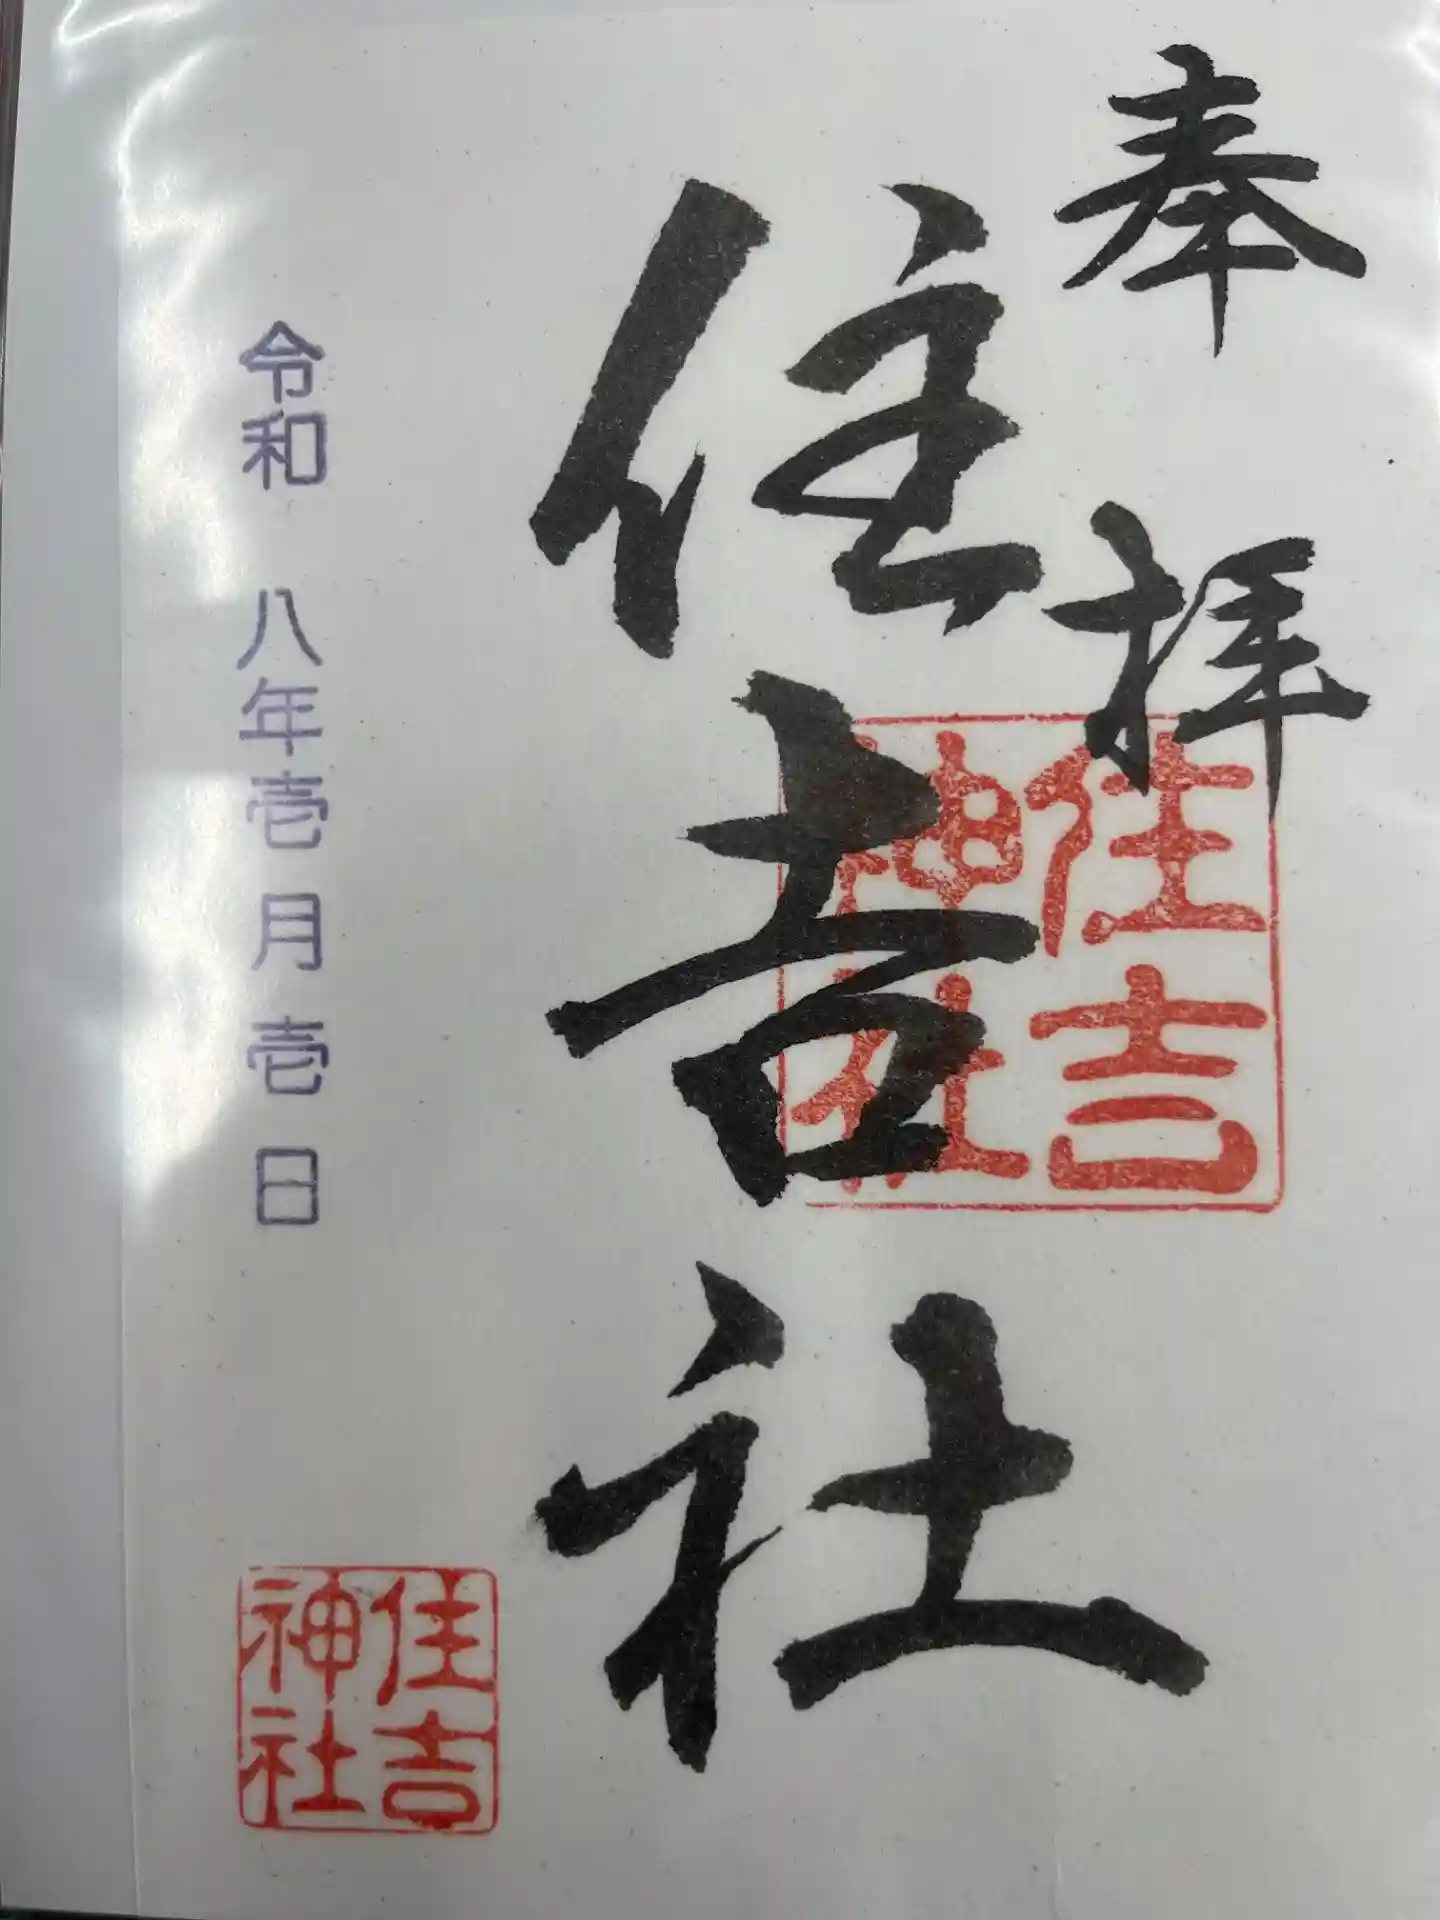 奉拝
住吉社
住吉
神社
令和 八年壱月壱日
住吉
神社